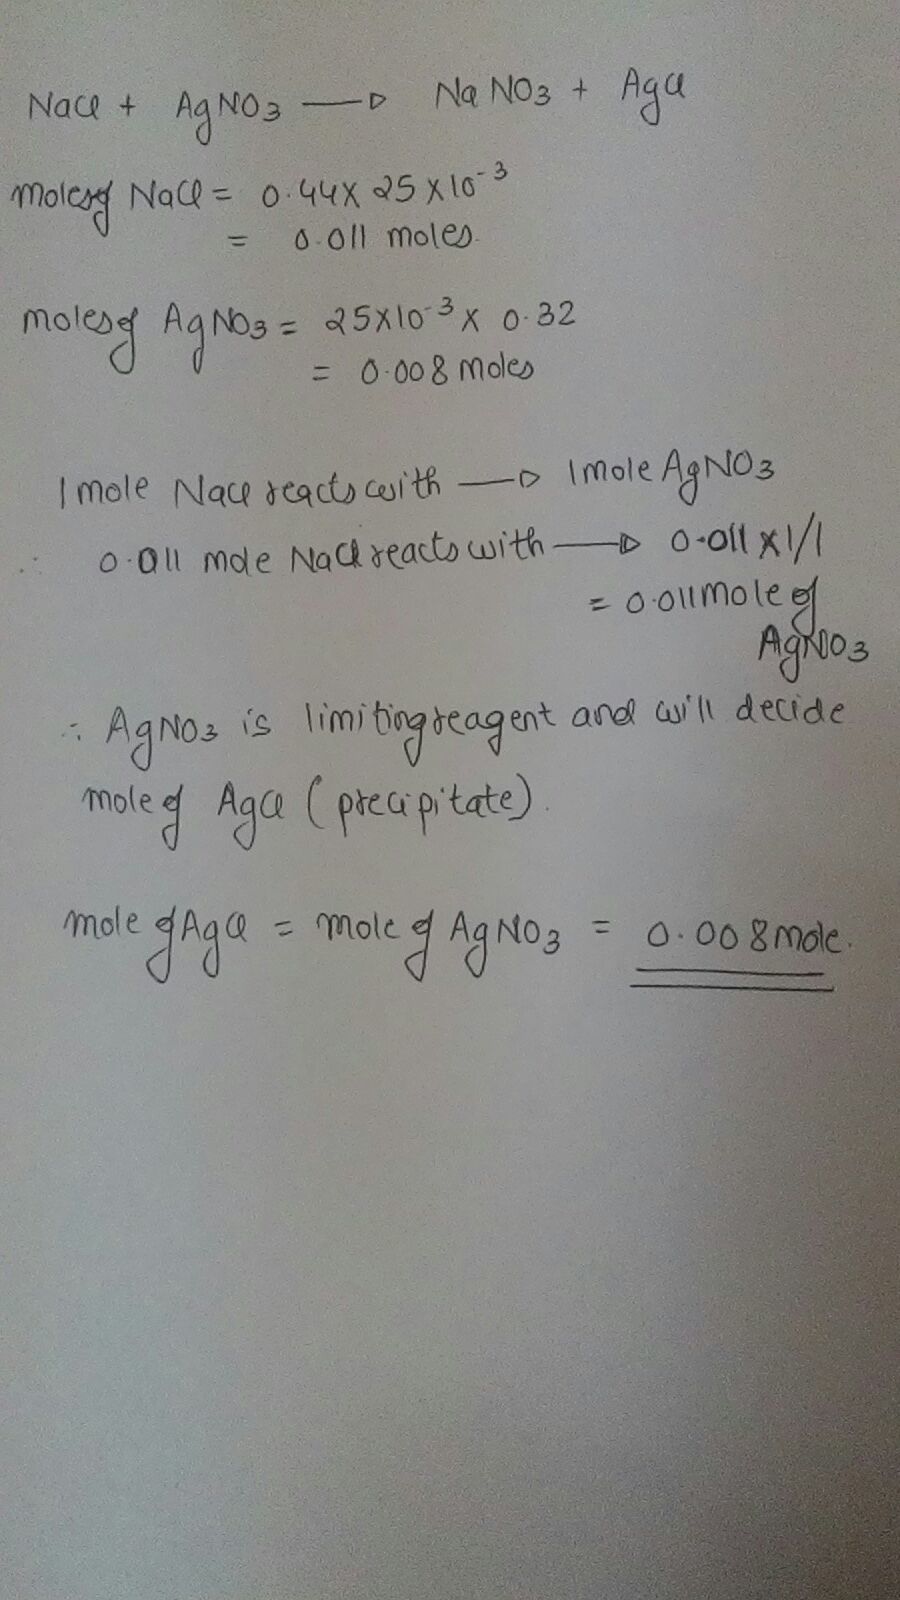 NaCl + AgNO3 → NaNO3 + AgCl
moles of NaCl = 0.44 x 25 x 10⁻³
= 0.011 moles.
moles of AgNO3 = 25x10⁻³ x 0.32
= 0.008 moles
1 mole NaCl reacts with → 1 mole AgNO3
∴ 0.011 mole NaCl reacts with → 0.011 x 1/1
= 0.011 mole of
AgNO3
∴ AgNO3 is limiting reagent and will decide
mole of AgCl (precipitate).
mole of AgCl = mole of AgNO3 = 0.008 mole.